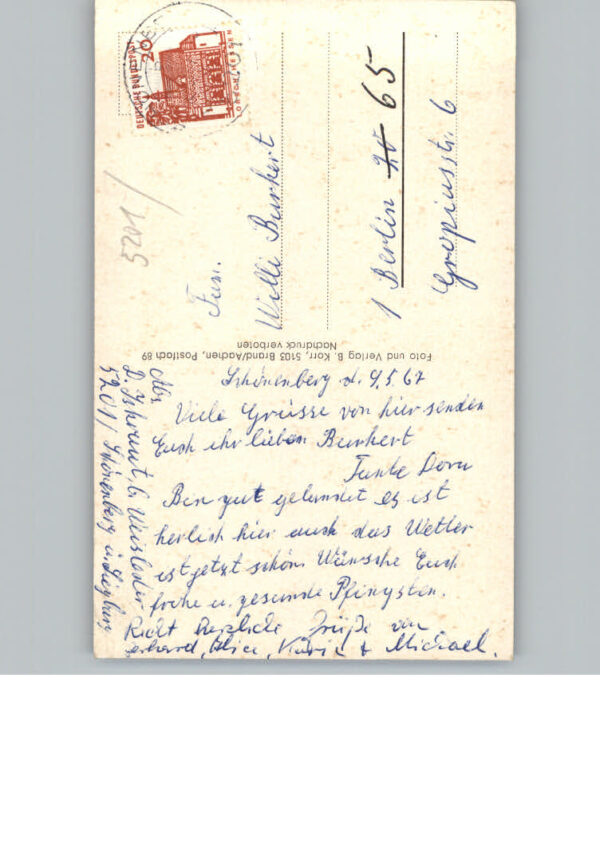 DEUTSCHE BUNDESPOST
20
LORSCH/HESSEN
5201/
Fam.
Willi Burkert
1 Berlin 20 65
Gropiusstr. 6
Foto und Verlag B. Korr, 5103 Brand/Aachen, Postfach 89
Nachdruck verboten
Schönenberg d. 9.5.67
Viele Grüsse von hier senden
Euch ihr lieben Burkert
Tante Dora
Bin gut gelandet es ist
herlich hier auch das Wetter
ist jetzt schön Wünsche Euch
frohe u. gesunde Pfingsten.
Recht herzliche Grüße von
erhard, Alice, Karin + Michael.
Abs.
D.
5201/ Schönenberg